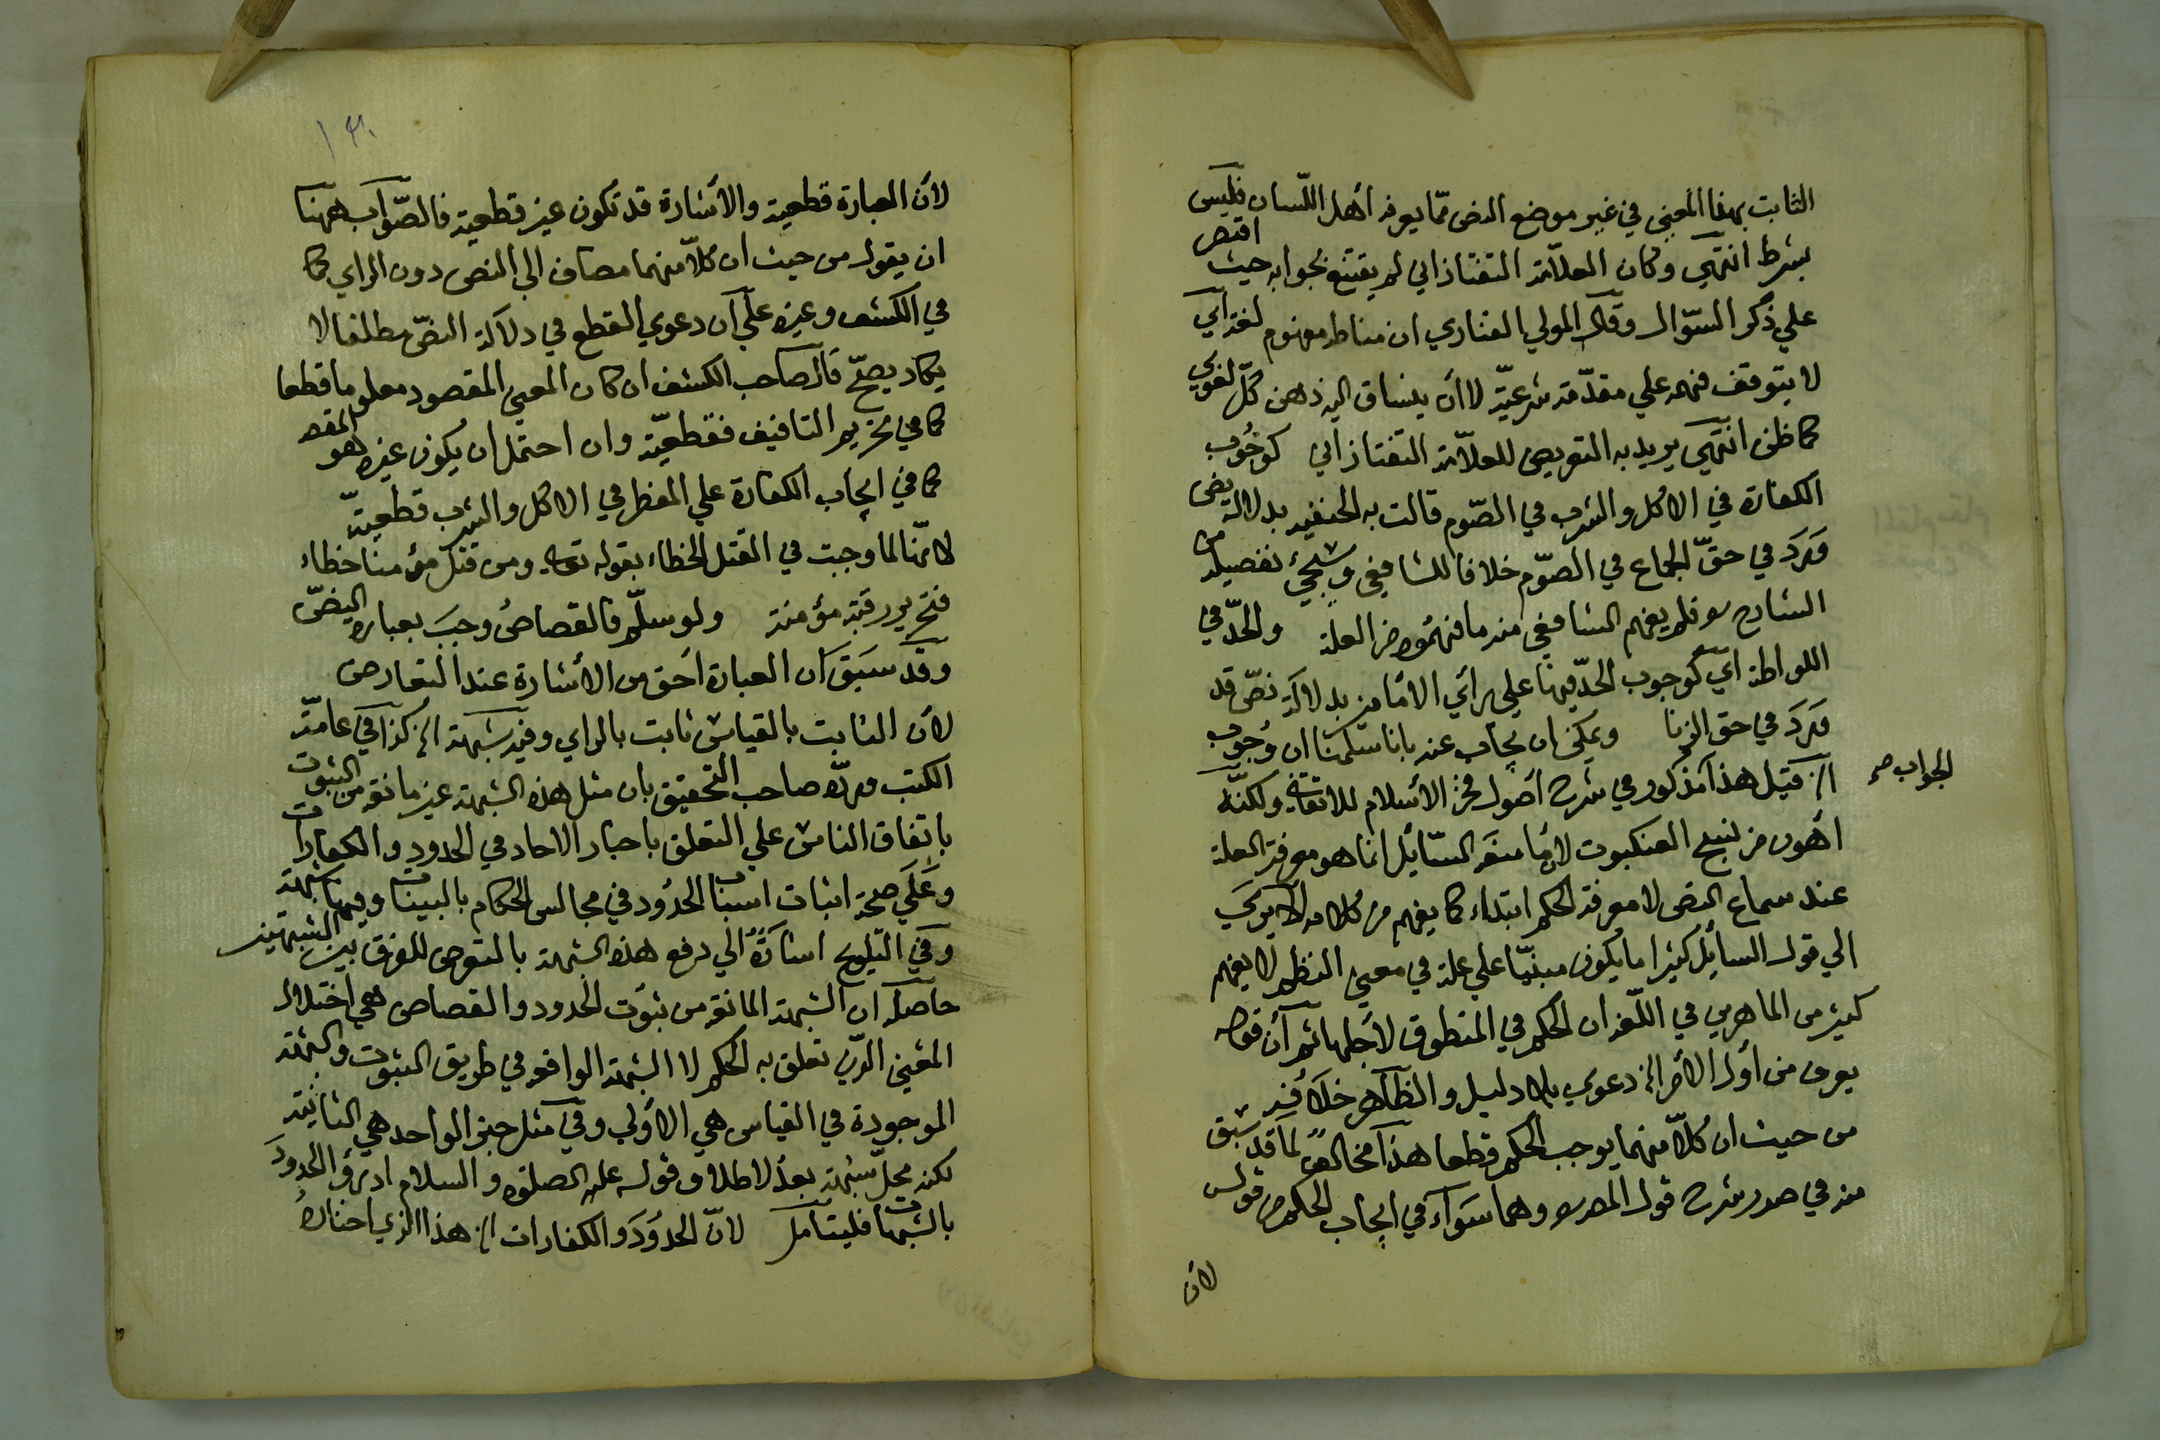 الثابت بهذا المعنى في غير موضع النص مما يعرفه أهل اللسان فليس
بشرط انتهى وكان العلامة التفتازاني لم يقتنع بجوابه حيث اقتصر
على ذكر السؤال وقال المولى الفناري ان مناطه مفهوم لغة اي
لا يتوقف فهمه على مقدمة شرعية لا أن ينساق اليه ذهن كل لغوي
كما ظن انتهى يريد به التعريض للعلامة التفتازاني كوجوب
الكفارة في الاكل والشرب في الصوم قالت به الحنفية بدلالة نص
ورد في حق الجماع في الصوم خلافا للشافعي وسيجئ تفصيله من
الشارح فلم يفهم الشافعي منه ما فهموه من العلة والحد في
اللواطة اي كوجوب الحد فيها على رأي الامامين بدلالة نص قد
ورد في حق الزنا ويمكن ان يجاب عنه بانا سلمنا ان وجوب
الخ قيل هذا مذكور في شرح أصول فخر الاسلام للاتقاني ولكنه
الجواب صح
أهون من نسج العنكبوت لأن ما منعه السائل انما هو معرفة العلة
عند سماع النص لا معرفة الحكم ابتداء كما يفهم من كلامه الا يرى
الى قول السائل كثيرا ما يكون مبنيا على علة في معنى النظم لا يفهم
كثير من الماهرين في اللغة ان الحكم في المنطوق لأجلها ثم أن قوله
يعرف من أول الأمر الخ دعوى بلا دليل والظاهر خلافه
من حيث ان كلا منهما يوجب الحكم قطعا هذا مخالف لما قد سبق
منه في صدر شرح قول المص وهما سواء في ايجاب الحكم من قوله
لأن
١٣١
لأن العبارة قطعية والأشارة قد تكون غير قطعية فالصواب ههنا
ان يقول من حيث ان كلا منهما مضاف الى النص دون الراي كما
في الكشف وغيره على أن دعوى القطع في دلالة النص مطلقا لا
يكاد يصح قال صاحب الكشف ان كان المعنى المقصود معلوما قطعا
كما في تحريم التافيف فقطعية وان احتمل ان يكون غيره هو المقصود
كما في ايجاب الكفارة على المفطر في الاكل والشرب قطعية
لانها لما وجبت في القتل الخطاء بقوله تعالى ومن قتل مؤمنا خطاء
فتحرير رقبة مؤمنة ولو سلم فالقصاص وجب بعبارة النص
وقد سبق أن العبارة أحق من الأشارة عند التعارض
لأن الثابت بالقياس ثابت بالراي وفيه شبهة الخ كذا في عامة
الكتب ورده صاحب التحقيق بان مثل هذه الشبهة غير مانعة من الثبوت
باتفاق الناس على التعلق باخبار الاحاد في الحدود والكفارات
وعلى صحة اثبات اسباب الحدود في مجالس الحكام بالبينات وفيها شبهة
وفي التلويح اشارة الى دفع هذه الشبهة بالتعرض للفرق بين الشبهتين
حاصله ان الشبهة المانعة من ثبوت الحدود والقصاص هي اختلال
المعنى الذي تعلق به الحكم لا الشبهة الواقعة في طريق الثبوت والشبهة
الموجودة في القياس هي الأولى وفي مثل خبر الواحد هي الثانية
لكنه محل شبهة بعد لاطلاق قوله عليه الصلوة والسلام ادرؤا الحدود
بالشبهات فليتأمل لان الحدود والكفارات الخ هذا الذي اختاره